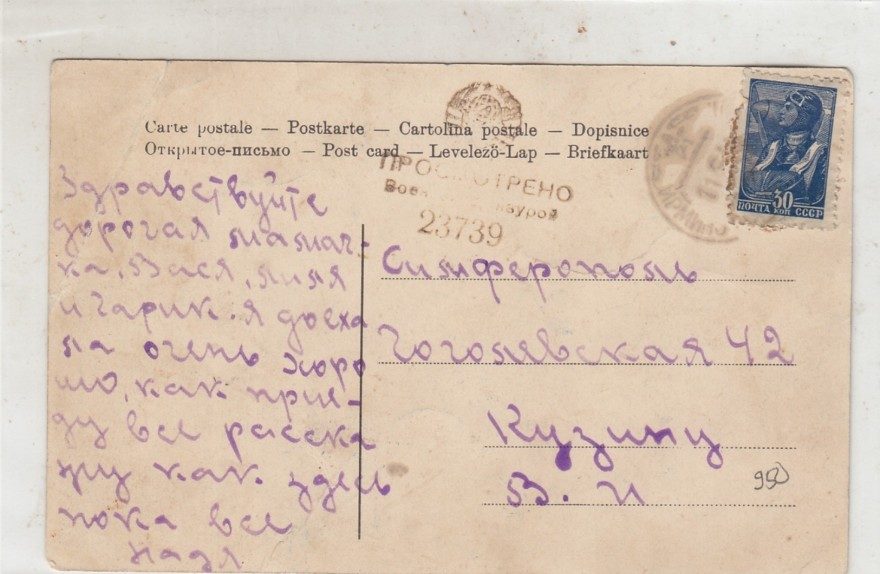 Carte postale — Postkarte — Cartolina postale — Dopisnice
Открытое-письмо — Post card — Levelező-Lap — Briefkaart
ПРОСМОТРЕНО
23739
ПОЧТА 30 КОП СССР
Здравствуйте
дорогая мамач-
ка, Вася, лиля
и Гарик. Я доеха
ла очень хоро
шо, как прие-
ду все расска
жу как здесь
пока все
Надя
Симферополь
Гоголевская 42
Кузину
В. И
950